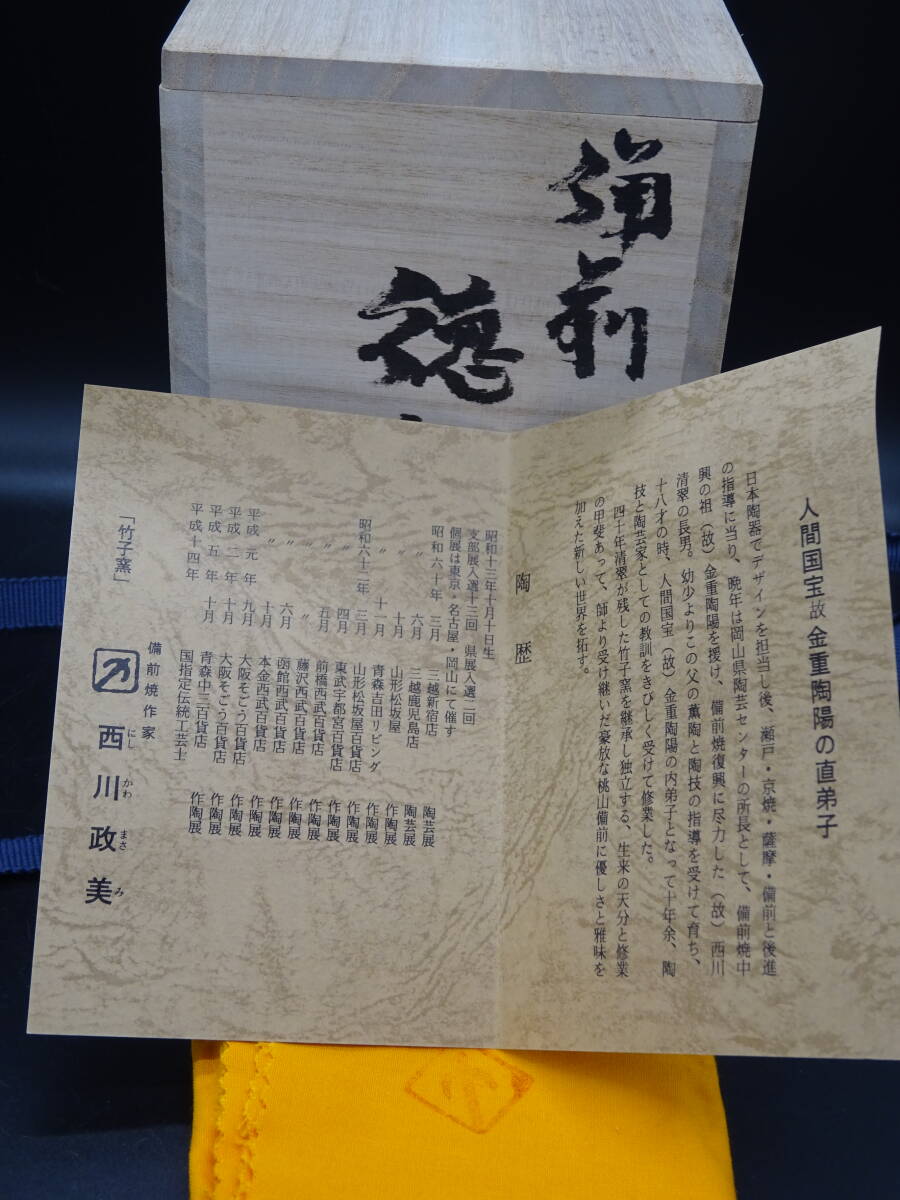 備前
徳
人間国宝故金重陶陽の直弟子
日本陶器でデザインを担当し後、瀬戸・京焼・薩摩・備前と後進
の指導に当り、晩年は岡山県陶芸センターの所長として、備前焼中
興の祖(故)金重陶陽を援け、備前焼復興に尽力した(故)西川
清翠の長男。幼少よりこの父の薫陶と陶技の指導を受けて育ち、
十八才の時、人間国宝(故)金重陶陽の内弟子となって十年余、陶
技と陶芸家としての教訓をきびしく受けて修業した。
四十年清翠が残した竹子窯を継承し独立する、生来の天分と修業
の甲斐あって、師より受け継いだ豪放な桃山備前に優しさと雅味を
加えた新しい世界を拓す。
陶歴
昭和十三年十月十日生
支部展入選十三回 県展入選二回
個展は東京・名古屋・岡山にて催す
昭和六十年 三月 三越新宿店 陶芸展
〃 六月 三越鹿児島店 陶芸展
〃 十月 山形松坂屋 作陶展
〃 十一月 青森吉田リビング 作陶展
昭和六十二年 三月 山形松坂屋百貨店 作陶展
〃 四月 東武宇都宮百貨店 作陶展
〃 五月 前橋西武百貨店 作陶展
〃 〃 藤沢西武百貨店 作陶展
〃 六月 函館西武百貨店 作陶展
〃 十月 本金西武百貨店 作陶展
平成元年 九月 大阪そごう百貨店 作陶展
平成二年 十月 大阪そごう百貨店 作陶展
平成五年 十月 青森中三百貨店 作陶展
平成十四年 十月 国指定伝統工芸士 作陶展
備前焼作家
「竹子窯」 西川政美
にし かわ まさ み